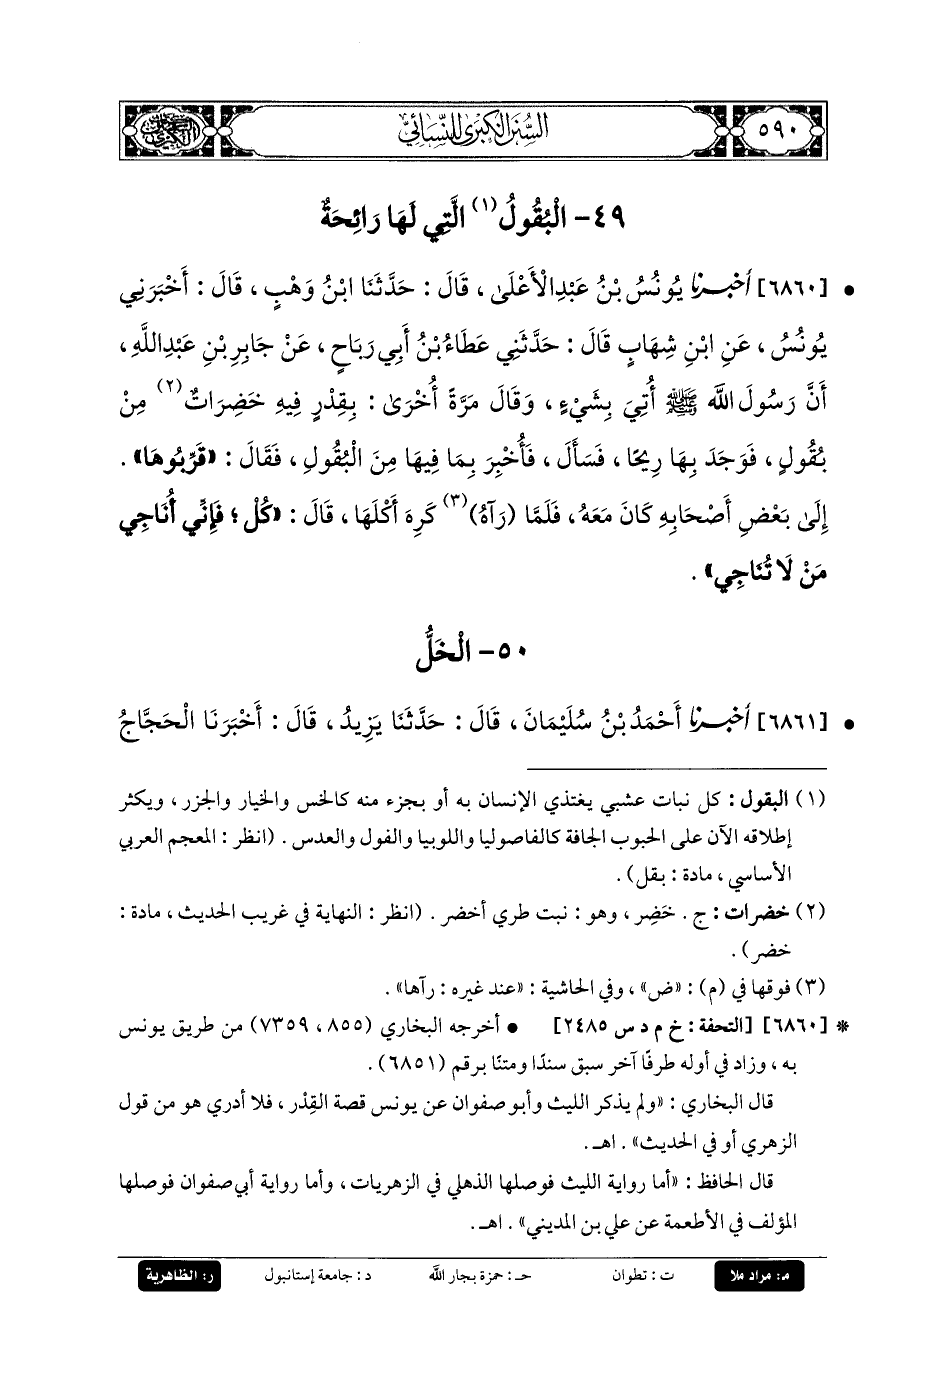 ٥٩٠
السُّنَنُ الْكُبْرَى لِلنَّسَائِيِّ
٤٩- الْبُقُولُ (١) الَّتِي لَهَا رَائِحَةٌ
• [٦٨٦٠] أَخْبَرَنَا يُونُسُ بْنُ عَبْدِ الْأَعْلَى، قَالَ: حَدَّثَنَا ابْنُ وَهْبٍ، قَالَ: أَخْبَرَنِي
يُونُسُ، عَنِ ابْنِ شِهَابٍ قَالَ: حَدَّثَنِي عَطَاءُ بْنُ أَبِي رَبَاحٍ، عَنْ جَابِرِ بْنِ عَبْدِ اللَّهِ،
أَنَّ رَسُولَ اللَّه ﷺ أُتِيَ بِشَيْءٍ، وَقَالَ مَرَّةً أُخْرَى: بِقِدْرٍ فِيهِ خَضِرَاتٌ (٢) مِنْ
بُقُولٍ، فَوَجَدَ بِهَا رِيحًا، فَسَأَلَ، فَأُخْبِرَ بِمَا فِيهَا مِنَ الْبُقُولِ، فَقَالَ: «قَرِّبُوهَا».
إِلَى بَعْضِ أَصْحَابِهِ كَانَ مَعَهُ، فَلَمَّا (رَآهُ) (٣) كَرِهَ أَكْلَهَا، قَالَ: «كُلْ؛ فَإِنِّي أُنَاجِي
مَنْ لَا تُنَاجِي».
٥٠- الْخَلُّ
• [٦٨٦١] أَخْبَرَنَا أَحْمَدُ بْنُ سُلَيْمَانَ، قَالَ: حَدَّثَنَا يَزِيدُ، قَالَ: أَخْبَرَنَا الْحَجَّاجُ
(١) البقول: كل نبات عشبي يغتذي الإنسان به أو بجزء منه كالخس والخيار والجزر، ويكثر
إطلاقه الآن على الحبوب الجافة كالفاصوليا واللوبيا والفول والعدس. (انظر: المعجم العربي
الأساسي، مادة: بقل).
(٢) خضرات: ج. خَضِر، وهو: نبت طري أخضر. (انظر: النهاية في غريب الحديث، مادة:
خضر).
(٣) فوقها في (م): «ض»، وفي الحاشية: «عند غيره: رآها».
* [٦٨٦٠] [التحفة: خ م د س ٢٤٨٥] • أخرجه البخاري (٨٥٥، ٧٣٥٩) من طريق يونس
به، وزاد في أوله طرفًا آخر سبق سندًا ومتنًا برقم (٦٨٥١).
قال البخاري: «ولم يذكر الليث وأبو صفوان عن يونس قصة القِدْر، فلا أدري هو من قول
الزهري أو في الحديث». اهـ.
قال الحافظ: «أما رواية الليث فوصلها الذهلي في الزهريات، وأما رواية أبي صفوان فوصلها
المؤلف في الأطعمة عن علي بن المديني». اهـ.
م: مراد ملا ت: تطوان حـ: حمزة بجار اللَّه د: جامعة إستانبول ر: الظاهرية